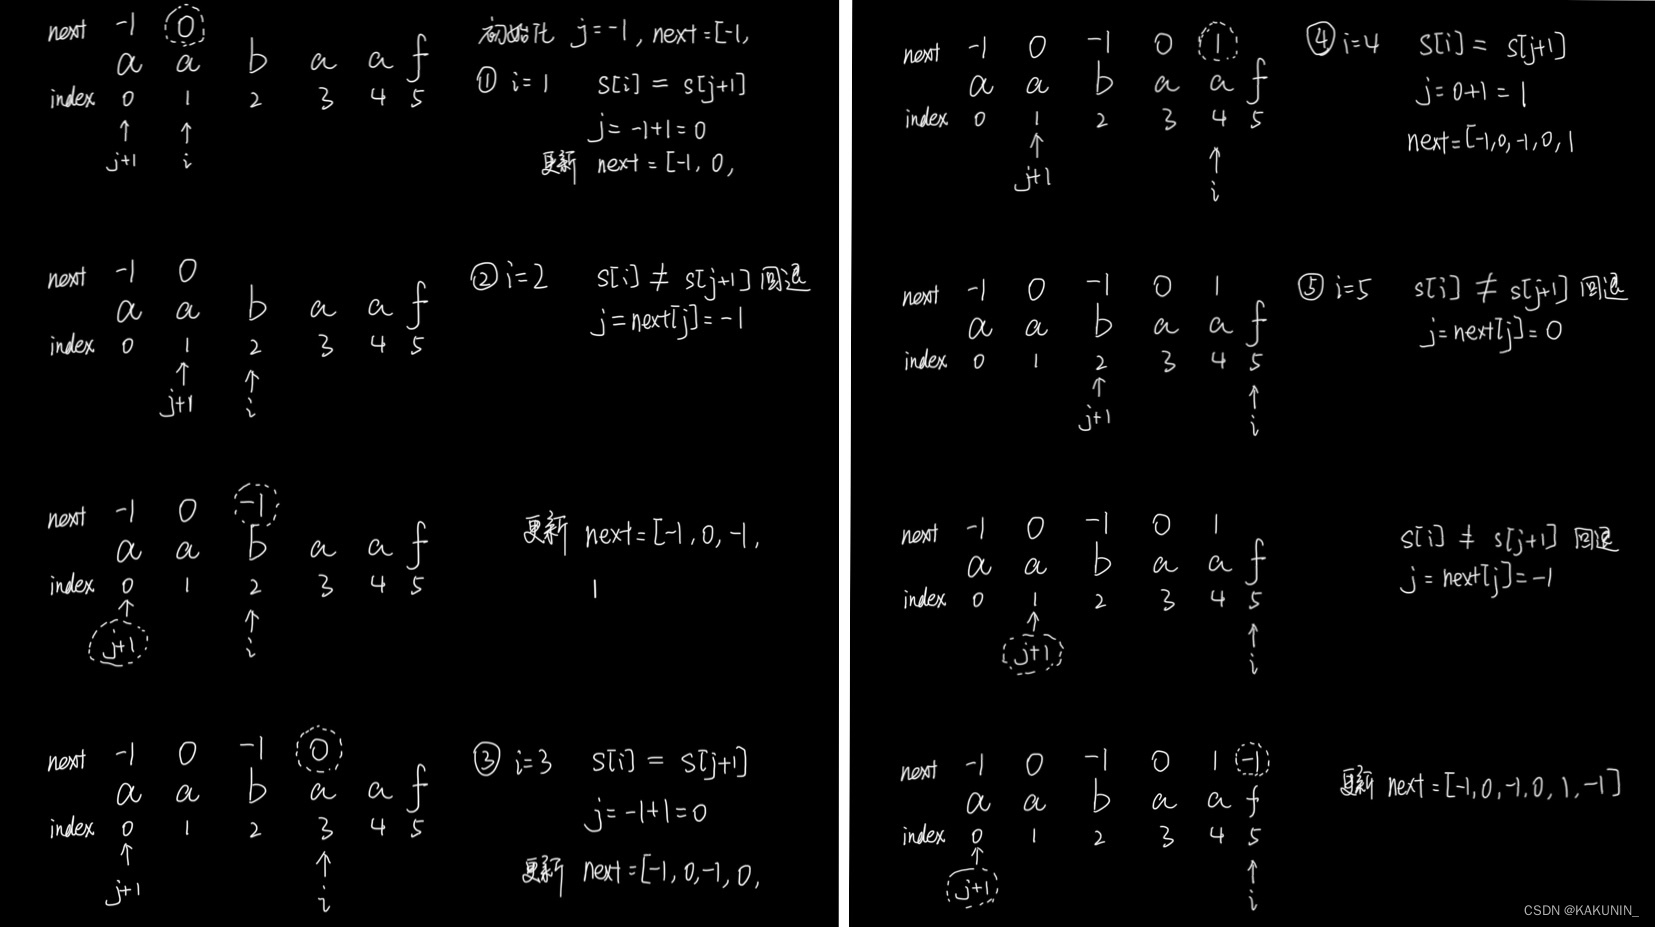 next -1 0
a a b a a f
index 0 1 2 3 4 5
↑ ↑
j+1 i
初始化 j=-1, next=[-1,
① i=1 s[i] = s[j+1]
j= -1+1=0
更新 next = [-1, 0,
next -1 0
a a b a a f
index 0 1 2 3 4 5
↑ ↑
j+1 i
② i=2 s[i] ≠ s[j+1] 回退
j=next[j]=-1
next -1 0 -1
a a b a a f
index 0 1 2 3 4 5
↑ ↑
j+1 i
更新 next=[-1, 0, -1,
1
next -1 0 -1 0
a a b a a f
index 0 1 2 3 4 5
↑ ↑
j+1 i
③ i=3 s[i] = s[j+1]
j=-1+1=0
更新 next=[-1, 0, -1, 0,
next -1 0 -1 0 1
a a b a a f
index 0 1 2 3 4 5
↑ ↑
j+1 i
④ i=4 s[i] = s[j+1]
j=0+1=1
next=[-1,0,-1,0,1
next -1 0 -1 0 1
a a b a a f
index 0 1 2 3 4 5
↑ ↑
j+1 i
⑤ i=5 s[i] ≠ s[j+1] 回退
j=next[j]=0
next -1 0 -1 0 1
a a b a a f
index 0 1 2 3 4 5
↑ ↑
j+1 i
s[i] ≠ s[j+1] 回退
j=next[j]=-1
next -1 0 -1 0 1 -1
a a b a a f
index 0 1 2 3 4 5
↑ ↑
j+1 i
更新 next=[-1,0,-1,0,1,-1]
CSDN @KAKUNIN_